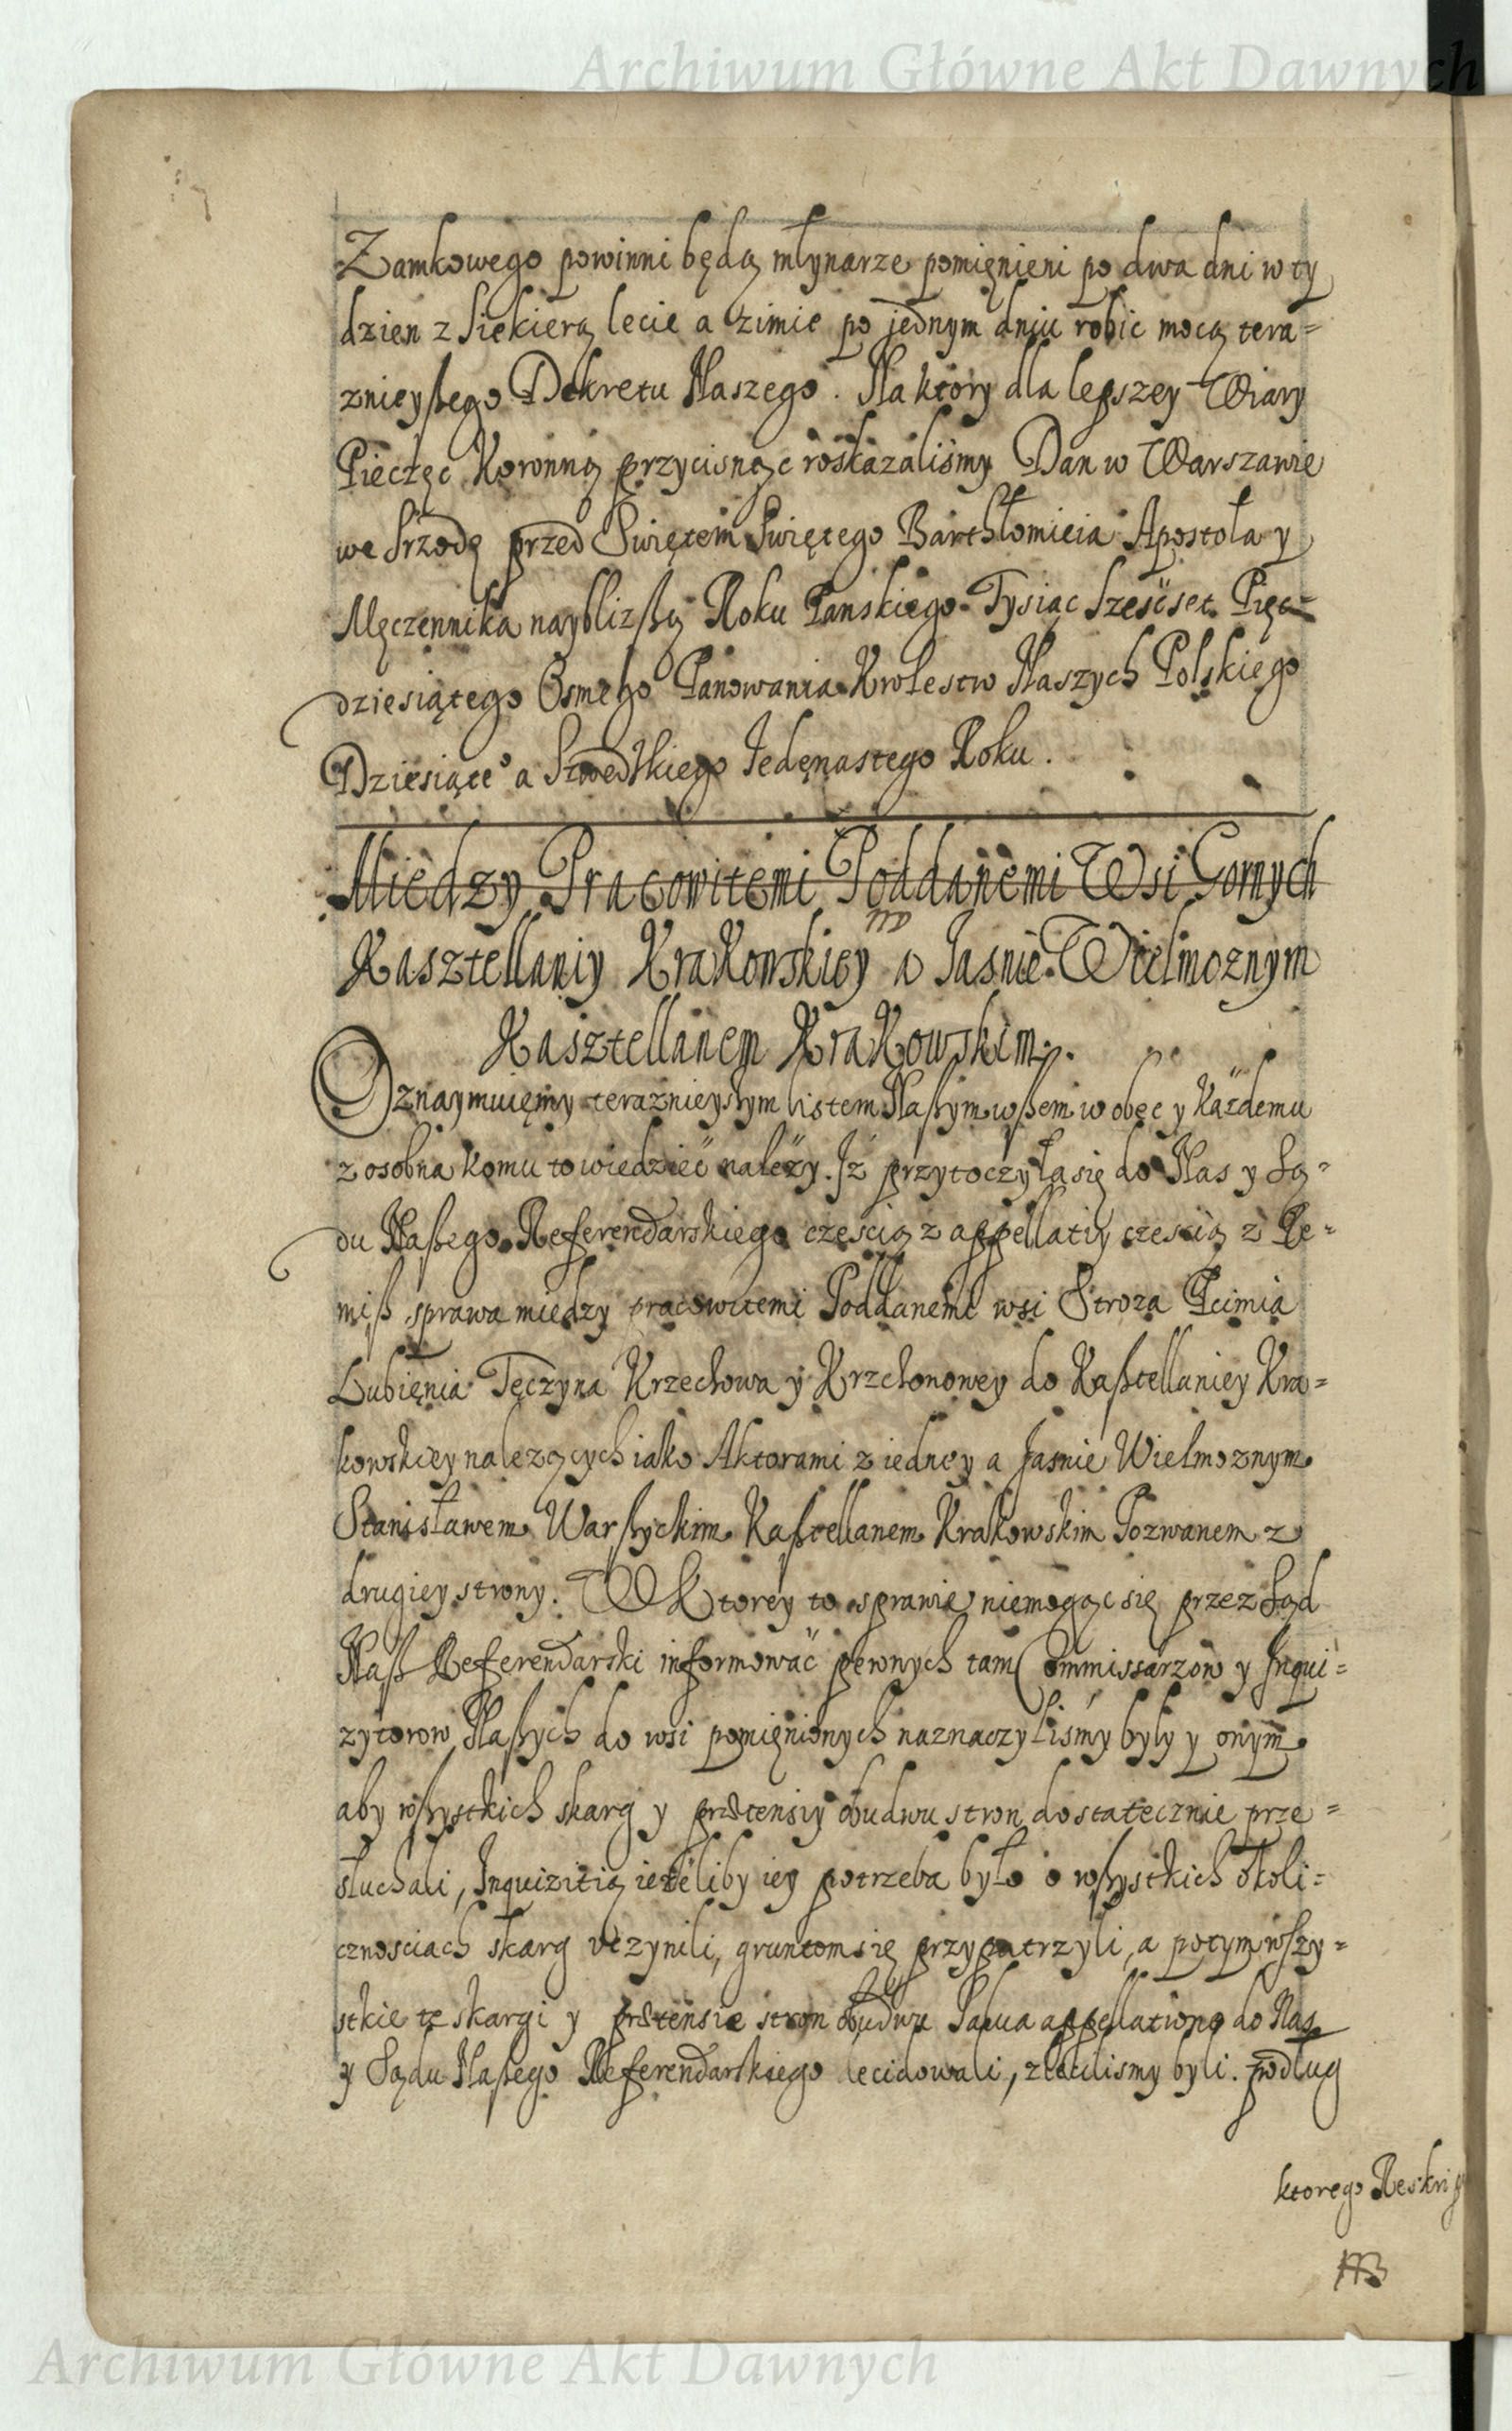 Archiwum Główne Akt Dawnych
Zamkowego powinni będą młynarze pomięnieni po dwa dni w ty
dzien z siekierą lecie a zimie po jednym dniu robic mocą tera=
znieyszego Dekretu Naszego. Na ktory dla lepszey Wiary
Pieczęc Koronną przycisnąc roskazalismy Dan w Warszawie
we Srzodę przed Swiętem Swiętego Barthłomieia Apostoła y
Męczennika nayblizszą Roku Panskiego Tysiąc Szescset Pięc=
dziesiątego Osmego Panowania Krolestw Naszych Polskiego
Dziesiąteº a Szwedzkiego Jedęnastego Roku.
Miedzy Pracowitemi Poddanemi Wsi Gornych
Kasztellaniy Krakowskiey a Jasnie Wielmoznym
Kasztellanem Krakowskim.
Oznaymuięmy teraznieyszym listem Naszym wszem w obec y kazdemu
z osobna komu to wiedziec nalezy. Jz przytoczyła się do Nas y Są=
du Naszego Referendarskiego częscią z appellatiy czescią z Re=
miss sprawa miedzy pracowitemi Poddanemi wsi Stroza Pcimia
Lubięnia Tęczyna Krzechowa y Krzchonowey do Kasztellaniey Kra=
kowskiey nalezących iako Aktorami z iedney a Jasnie Wielmoznym
Stanisławem Warszyckim Kasztellanem Krakowskim Pozwanem z
drugiey strony. W Ktorey to sprawie niemogąc się przez Sąd
Nasz Referendarski informowac pewnych tam Commissarzow y Jnqui=
zytorow Naszych do wsi pomięnionych naznaczylismy byly y onym
aby wszystkich skarg y prætensiy obudwu stron dostatecznie prze=
słuchali, Jnquizitią iezeliby iey potrzeba było o wszystkich okoli=
cznosciach skarg vczynili, gruntom się przypatrzyli, a potym wszy=
stkie te skargi y prætensie stron obudwu salua appellatione do Nas
y Sądu Naszego Referendarskiego decidowali, zlecilismy byli. podług
ktorego Reskrip
Archiwum Główne Akt Dawnych